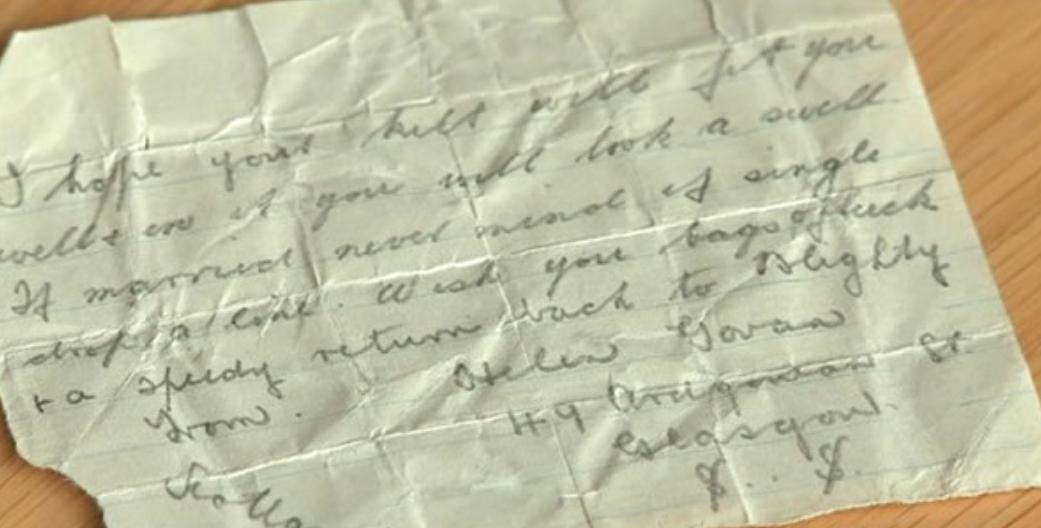 I hope your kilt will fit you
well & in it you will look a swell
If married never mind if single
drop a line. Wish you bags of luck
+ a speedy return back to Blighty
From. Helen Govan
49 Ardgowan St
Glasgow.